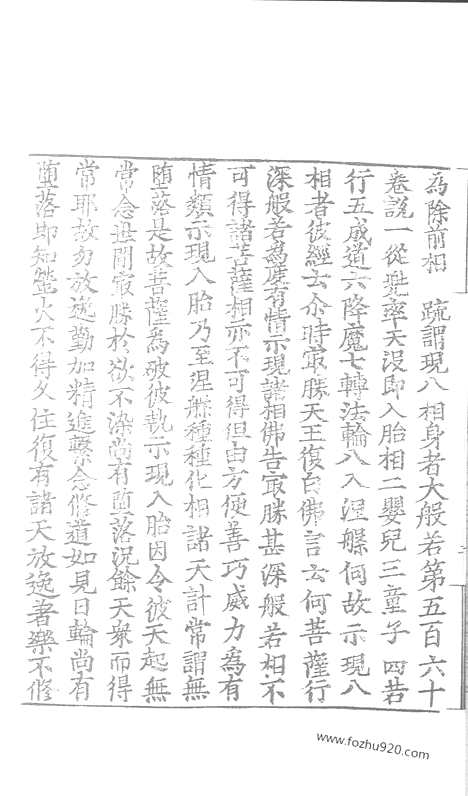 為除前相　疏謂現八相身者大般若第五百六十
卷說一從兜率天沒即入胎相二嬰兒三童子四苦
行五成道六降魔七轉法輪八入涅槃何故示現八
相者彼經云尒時寂勝天王復白佛言云何菩薩行
深般若為度有情示現諸相佛告寂勝甚深般若相不
可得諸菩薩相亦不可得但由方便善巧威力為有
情類示現入胎乃至涅槃種種化相諸天計常謂無
墮落是故菩薩為破彼執示現入胎因令彼天起無
常念世間寂勝於欲不染尚有墮落況餘天衆而得
常耶故勿放逸勤加精進繫念修道如見日輪尚有
墮落即知螢火不得久住復有諸天放逸著樂不修
www.fozhu920.com